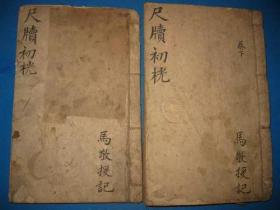 尺牘初桄
馬敬援記
尺牘初桄
卷下
馬敬援記